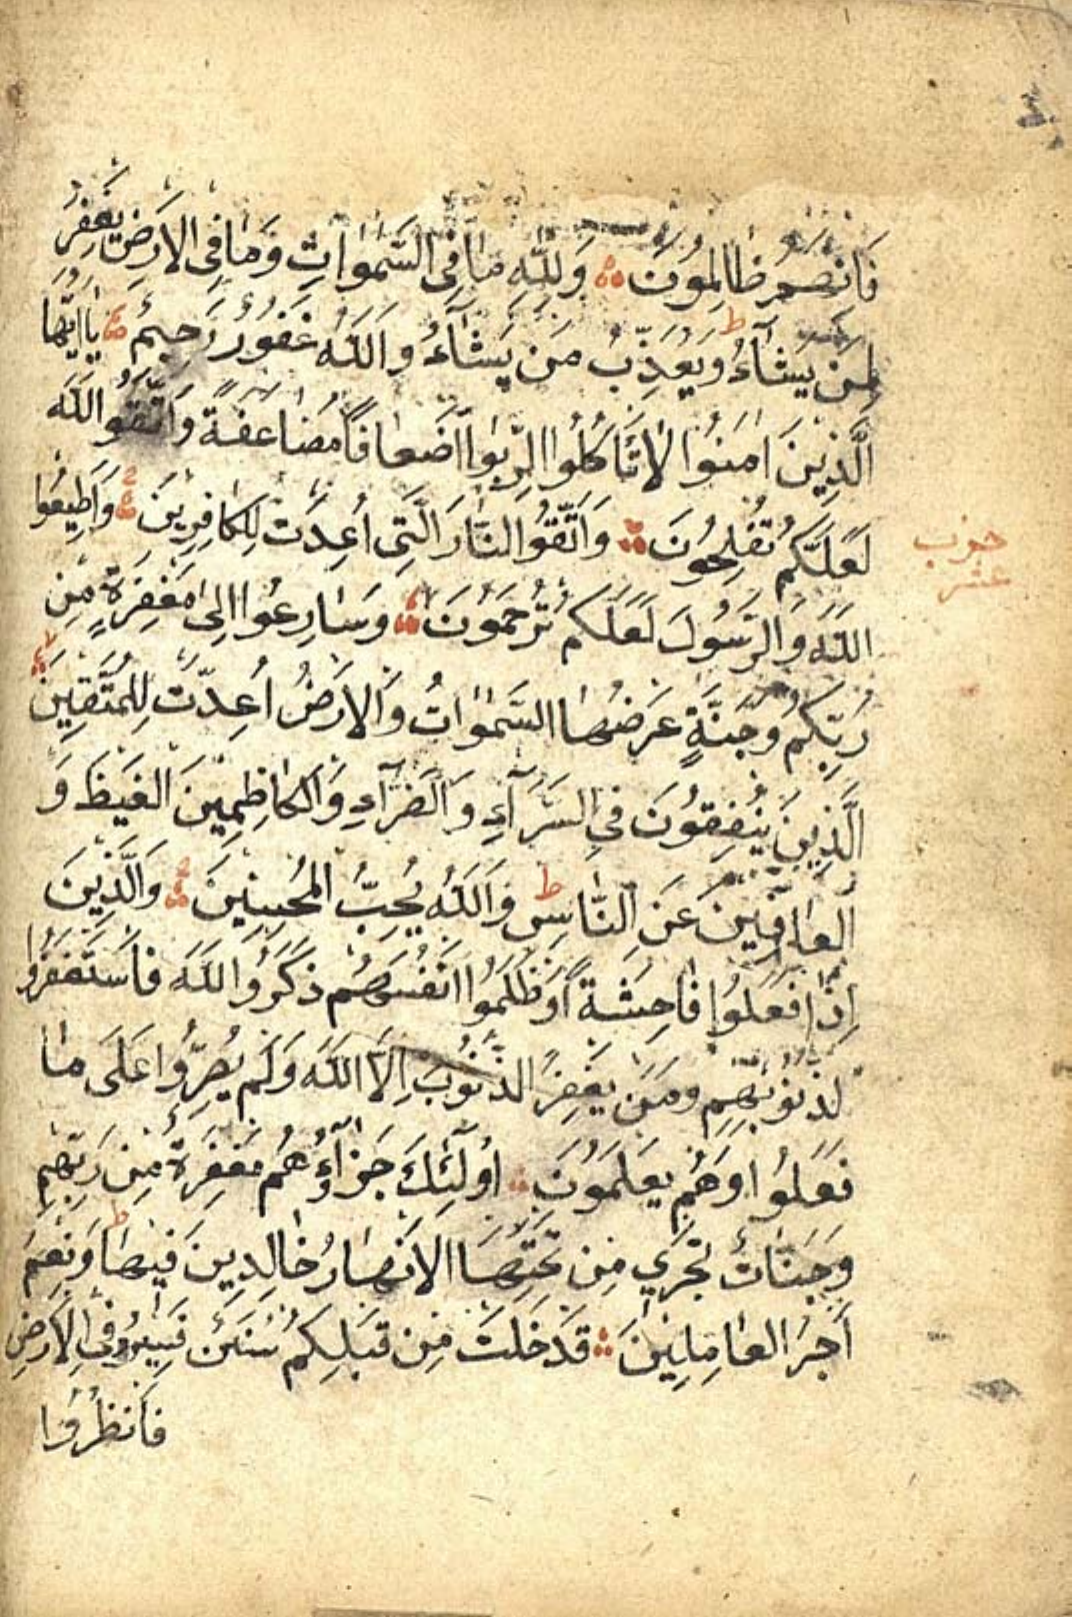 فَاِنَّهُمْ ظَالِمُونَ وَلِلّٰهِ مَا فِي السَّمٰوَاتِ وَمَا فِي الْاَرْضِ يَغْفِرُ
لِمَنْ يَشَآءُ ط وَيُعَذِّبُ مَنْ يَشَآءُ وَاللّٰهُ غَفُورٌ رَحِيمٌ يَا اَيُّهَا
الَّذِينَ اٰمَنُوا لَا تَاْكُلُوا الرِّبٰوا اَضْعَافًا مُضَاعَفَةً وَاتَّقُوا اللّٰهَ
لَعَلَّكُمْ تُفْلِحُونَ وَاتَّقُوا النَّارَ الَّتِي اُعِدَّتْ لِلْكَافِرِينَ وَاَطِيعُوا
اللّٰهَ وَالرَّسُولَ لَعَلَّكُمْ تُرْحَمُونَ وَسَارِعُوا اِلٰى مَغْفِرَةٍ مِنْ
رَبِّكُمْ وَجَنَّةٍ عَرْضُهَا السَّمٰوَاتُ وَالْاَرْضُ اُعِدَّتْ لِلْمُتَّقِينَ
الَّذِينَ يُنْفِقُونَ فِي السَّرَّآءِ وَالضَّرَّآءِ وَالْكَاظِمِينَ الْغَيْظَ وَ
الْعَافِينَ عَنِ النَّاسِ ط وَاللّٰهُ يُحِبُّ الْمُحْسِنِينَ وَالَّذِينَ
اِذَا فَعَلُوا فَاحِشَةً اَوْ ظَلَمُوا اَنْفُسَهُمْ ذَكَرُوا اللّٰهَ فَاسْتَغْفَرُوا
لِذُنُوبِهِمْ وَمَنْ يَغْفِرُ الذُّنُوبَ اِلَّا اللّٰهَ وَلَمْ يُصِرُّوا عَلَى مَا
فَعَلُوا وَهُمْ يَعْلَمُونَ اُولٰٓئِكَ جَزَآؤُهُمْ مَغْفِرَةٌ مِنْ رَبِّهِمْ
وَجَنَّاتٌ تَجْرِي مِنْ تَحْتِهَا الْاَنْهَارُ خَالِدِينَ فِيهَا ط وَنِعْمَ
اَجْرُ الْعَامِلِينَ قَدْ خَلَتْ مِنْ قَبْلِكُمْ سُنَنٌ فَسِيرُوا فِي الْاَرْضِ
فَانْظُرُوا
حزب
عشر